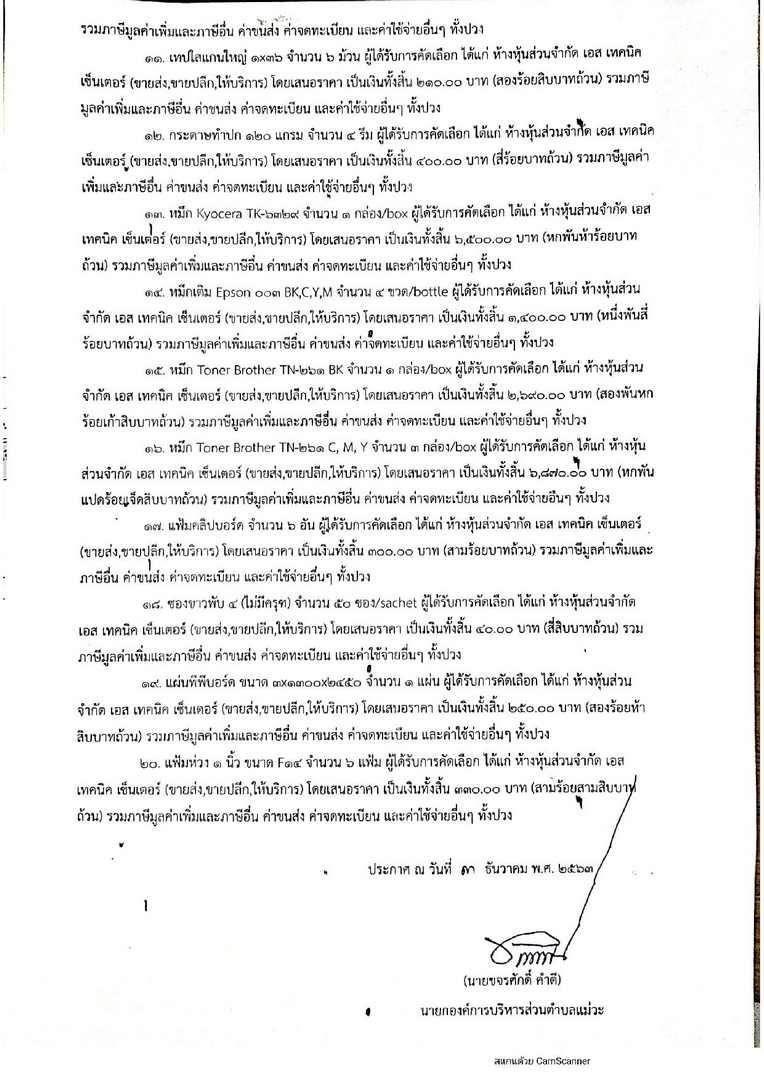 รวมภาษีมูลค่าเพิ่มและภาษีอื่น ค่าขนส่ง ค่าจดทะเบียน และค่าใช้จ่ายอื่นๆ ทั้งปวง
๑๑. เทปใสแกนใหญ่ ๑x๓๖ จำนวน ๖ ม้วน ผู้ได้รับการคัดเลือก ได้แก่ ห้างหุ้นส่วนจำกัด เอส เทคนิค
เซ็นเตอร์ (ขายส่ง,ขายปลีก,ให้บริการ) โดยเสนอราคา เป็นเงินทั้งสิ้น ๒๑๐.๐๐ บาท (สองร้อยสิบบาทถ้วน) รวมภาษี
มูลค่าเพิ่มและภาษีอื่น ค่าขนส่ง ค่าจดทะเบียน และค่าใช้จ่ายอื่นๆ ทั้งปวง
๑๒. กระดาษทำปก ๑๒๐ แกรม จำนวน ๔ รีม ผู้ได้รับการคัดเลือก ได้แก่ ห้างหุ้นส่วนจำกัด เอส เทคนิค
เซ็นเตอร์ (ขายส่ง,ขายปลีก,ให้บริการ) โดยเสนอราคา เป็นเงินทั้งสิ้น ๔๐๐.๐๐ บาท (สี่ร้อยบาทถ้วน) รวมภาษีมูลค่า
เพิ่มและภาษีอื่น ค่าขนส่ง ค่าจดทะเบียน และค่าใช้จ่ายอื่นๆ ทั้งปวง
๑๓. หมึก Kyocera TK-๖๓๒๙ จำนวน ๑ กล่อง/box ผู้ได้รับการคัดเลือก ได้แก่ ห้างหุ้นส่วนจำกัด เอส
เทคนิค เซ็นเตอร์ (ขายส่ง,ขายปลีก,ให้บริการ) โดยเสนอราคา เป็นเงินทั้งสิ้น ๖,๕๐๐.๐๐ บาท (หกพันห้าร้อยบาท
ถ้วน) รวมภาษีมูลค่าเพิ่มและภาษีอื่น ค่าขนส่ง ค่าจดทะเบียน และค่าใช้จ่ายอื่นๆ ทั้งปวง
๑๔. หมึกเติม Epson ๐๐๓ BK,C,Y,M จำนวน ๔ ขวด/bottle ผู้ได้รับการคัดเลือก ได้แก่ ห้างหุ้นส่วน
จำกัด เอส เทคนิค เซ็นเตอร์ (ขายส่ง,ขายปลีก,ให้บริการ) โดยเสนอราคา เป็นเงินทั้งสิ้น ๑,๔๐๐.๐๐ บาท (หนึ่งพันสี่
ร้อยบาทถ้วน) รวมภาษีมูลค่าเพิ่มและภาษีอื่น ค่าขนส่ง ค่าจดทะเบียน และค่าใช้จ่ายอื่นๆ ทั้งปวง
๑๕. หมึก Toner Brother TN-๒๖๑ BK จำนวน ๑ กล่อง/box ผู้ได้รับการคัดเลือก ได้แก่ ห้างหุ้นส่วน
จำกัด เอส เทคนิค เซ็นเตอร์ (ขายส่ง,ขายปลีก,ให้บริการ) โดยเสนอราคา เป็นเงินทั้งสิ้น ๒,๖๙๐.๐๐ บาท (สองพันหก
ร้อยเก้าสิบบาทถ้วน) รวมภาษีมูลค่าเพิ่มและภาษีอื่น ค่าขนส่ง ค่าจดทะเบียน และค่าใช้จ่ายอื่นๆ ทั้งปวง
๑๖. หมึก Toner Brother TN-๒๖๑ C, M, Y จำนวน ๓ กล่อง/box ผู้ได้รับการคัดเลือก ได้แก่ ห้างหุ้น
ส่วนจำกัด เอส เทคนิค เซ็นเตอร์ (ขายส่ง,ขายปลีก,ให้บริการ) โดยเสนอราคา เป็นเงินทั้งสิ้น ๖,๘๗๐.๐๐ บาท (หกพัน
แปดร้อยเจ็ดสิบบาทถ้วน) รวมภาษีมูลค่าเพิ่มและภาษีอื่น ค่าขนส่ง ค่าจดทะเบียน และค่าใช้จ่ายอื่นๆ ทั้งปวง
๑๗. แฟ้มคลิปบอร์ด จำนวน ๖ อัน ผู้ได้รับการคัดเลือก ได้แก่ ห้างหุ้นส่วนจำกัด เอส เทคนิค เซ็นเตอร์
(ขายส่ง,ขายปลีก,ให้บริการ) โดยเสนอราคา เป็นเงินทั้งสิ้น ๓๐๐.๐๐ บาท (สามร้อยบาทถ้วน) รวมภาษีมูลค่าเพิ่มและ
ภาษีอื่น ค่าขนส่ง ค่าจดทะเบียน และค่าใช้จ่ายอื่นๆ ทั้งปวง
๑๘. ซองขาวพับ ๔ (ไม่มีครุฑ) จำนวน ๕๐ ซอง/sachet ผู้ได้รับการคัดเลือก ได้แก่ ห้างหุ้นส่วนจำกัด
เอส เทคนิค เซ็นเตอร์ (ขายส่ง,ขายปลีก,ให้บริการ) โดยเสนอราคา เป็นเงินทั้งสิ้น ๔๐.๐๐ บาท (สี่สิบบาทถ้วน) รวม
ภาษีมูลค่าเพิ่มและภาษีอื่น ค่าขนส่ง ค่าจดทะเบียน และค่าใช้จ่ายอื่นๆ ทั้งปวง
๑๙. แผ่นทีพีบอร์ด ขนาด ๓x๑๓๐๐x๒๔๕๐ จำนวน ๑ แผ่น ผู้ได้รับการคัดเลือก ได้แก่ ห้างหุ้นส่วน
จำกัด เอส เทคนิค เซ็นเตอร์ (ขายส่ง,ขายปลีก,ให้บริการ) โดยเสนอราคา เป็นเงินทั้งสิ้น ๒๕๐.๐๐ บาท (สองร้อยห้า
สิบบาทถ้วน) รวมภาษีมูลค่าเพิ่มและภาษีอื่น ค่าขนส่ง ค่าจดทะเบียน และค่าใช้จ่ายอื่นๆ ทั้งปวง
๒๐. แฟ้มห่วง ๑ นิ้ว ขนาด F๑๔ จำนวน ๖ แฟ้ม ผู้ได้รับการคัดเลือก ได้แก่ ห้างหุ้นส่วนจำกัด เอส
เทคนิค เซ็นเตอร์ (ขายส่ง,ขายปลีก,ให้บริการ) โดยเสนอราคา เป็นเงินทั้งสิ้น ๓๓๐.๐๐ บาท (สามร้อยสามสิบบาท
ถ้วน) รวมภาษีมูลค่าเพิ่มและภาษีอื่น ค่าขนส่ง ค่าจดทะเบียน และค่าใช้จ่ายอื่นๆ ทั้งปวง
ประกาศ ณ วันที่ ๓ ธันวาคม พ.ศ. ๒๕๖๓
(นายขจรศักดิ์ คำดี)
นายกองค์การบริหารส่วนตำบลแม่วะ
สแกนด้วย CamScanner